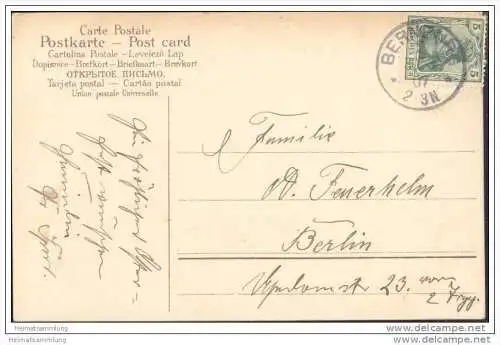 Carte Postale
Postkarte – Post card
Cartolina Postale – Levelezö Lap
Dopisnice – Brefkort – Briefkaart – Brevkort
ОТКРЫТОЕ ПИСЬМО.
Tarjeta postal – Cartão postal
Union postale Universelle
BER
07
2 3N
5
5
Ein fröhliches Oster-
fest wünschen
Familie
Familie
W. Feuerhelm
Berlin
Usedomstr 23. vorn
2 Trpp.
Heimatsammlung
Heimatsammlung